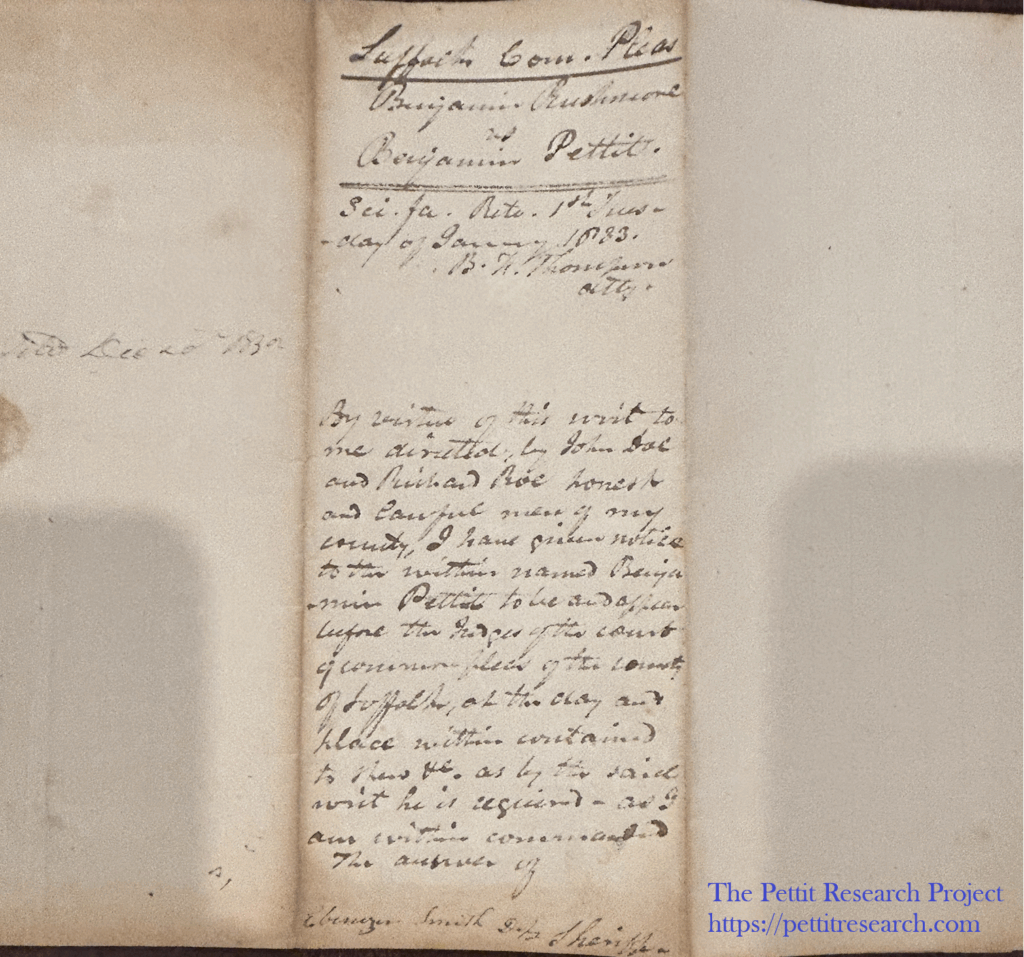 Suffolk Com. Pleas
Benjamin Rushmore
vs
Benjamin Pettit.
Sci. fa. Retr. 1st Tues-
-day of January 1833.
B. W. Thompson
atty.
Dec 20th 1832
By virtue of this writ to
me directed, by John Doe
and Richard Roe honest
and lawful men of my
county, I have given notice
to the within named Benja
-min Pettit to be and appear
before the Judges of the court
of common pleas of the county
of Suffolk, at the day and
place within contained
to shew &c. as by the said
writ he is required - as I
am within commanded
The answer of
Ebenezer Smith Dep Sheriff.
The Pettit Research Project
https://pettitresearch.com